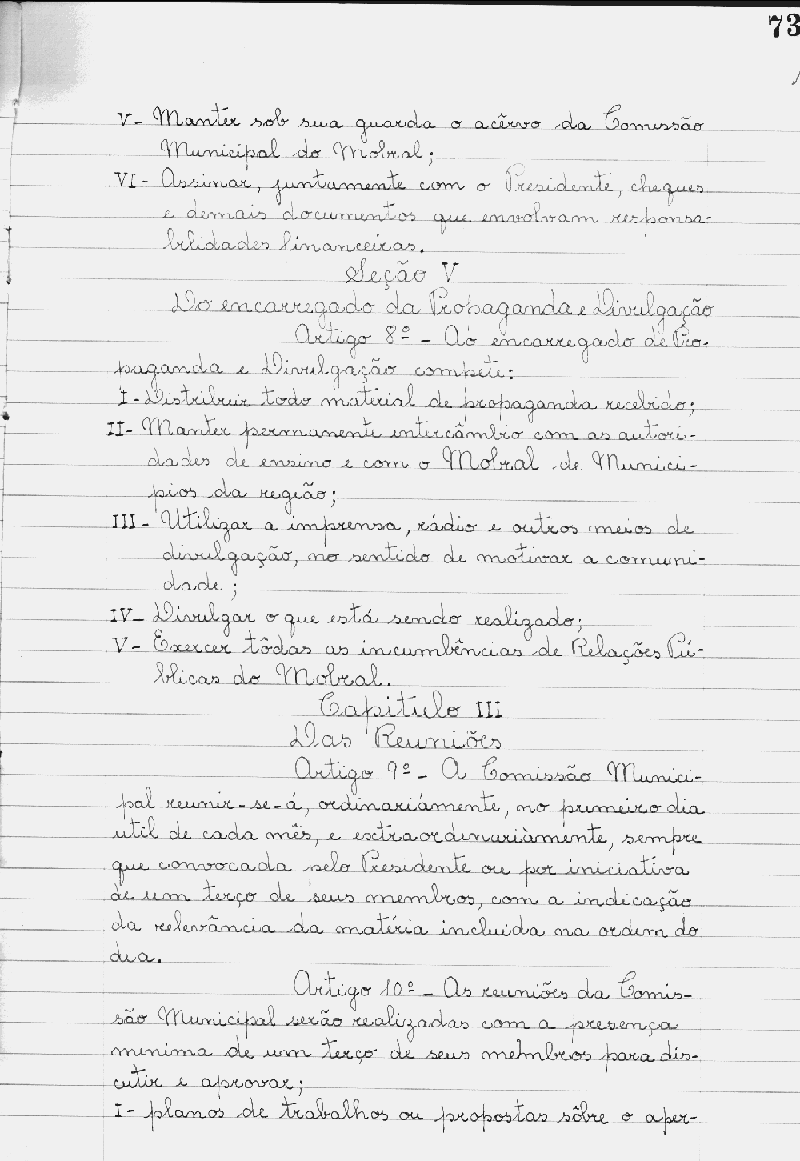 73
V- Mantér sob sua guarda o acêrvo da Comissão
Municipal do Mobral;
VI- Assinar, juntamente com o Presidente, cheques
e demais documentos que envolvam responsa-
bilidades financeiras.
Seção V
Do encarregado da Propaganda e Divulgação
Artigo 8º - Ao encarregado de Pro-
paganda e Divulgação compete:
I- Distribuir todo material de propaganda recebido;
II- Manter permanente intercâmbio com as autori-
dades de ensino e com o Mobral de Municí-
pios da região;
III- Utilizar a imprensa, rádio e outros meios de
divulgação, no sentido de motivar a comuni-
dade.;
IV- Divulgar o que está sendo realizado;
V- Exercer tôdas as incumbências de Relações Pú-
blicas do Mobral.
Capitulo III
Das Reuniões
Artigo 9º - A Comissão Munici-
pal reunir-se-á, ordinariámente, no primeiro dia
util de cada mês, e extraordinuriàmente, sempre
que convocada pelo Presidente ou por iniciativa
de um terço de seus membros, com a indicação
da relevância da matéria incluida na ordem do
dia.
Artigo 10º - As reuniões da Comis-
são Municipal serão realizadas com a presença
minima de um terço de seus membros para dis-
cutir e aprovar;
I- planos de trabalhos ou propostas sôbre o aper-